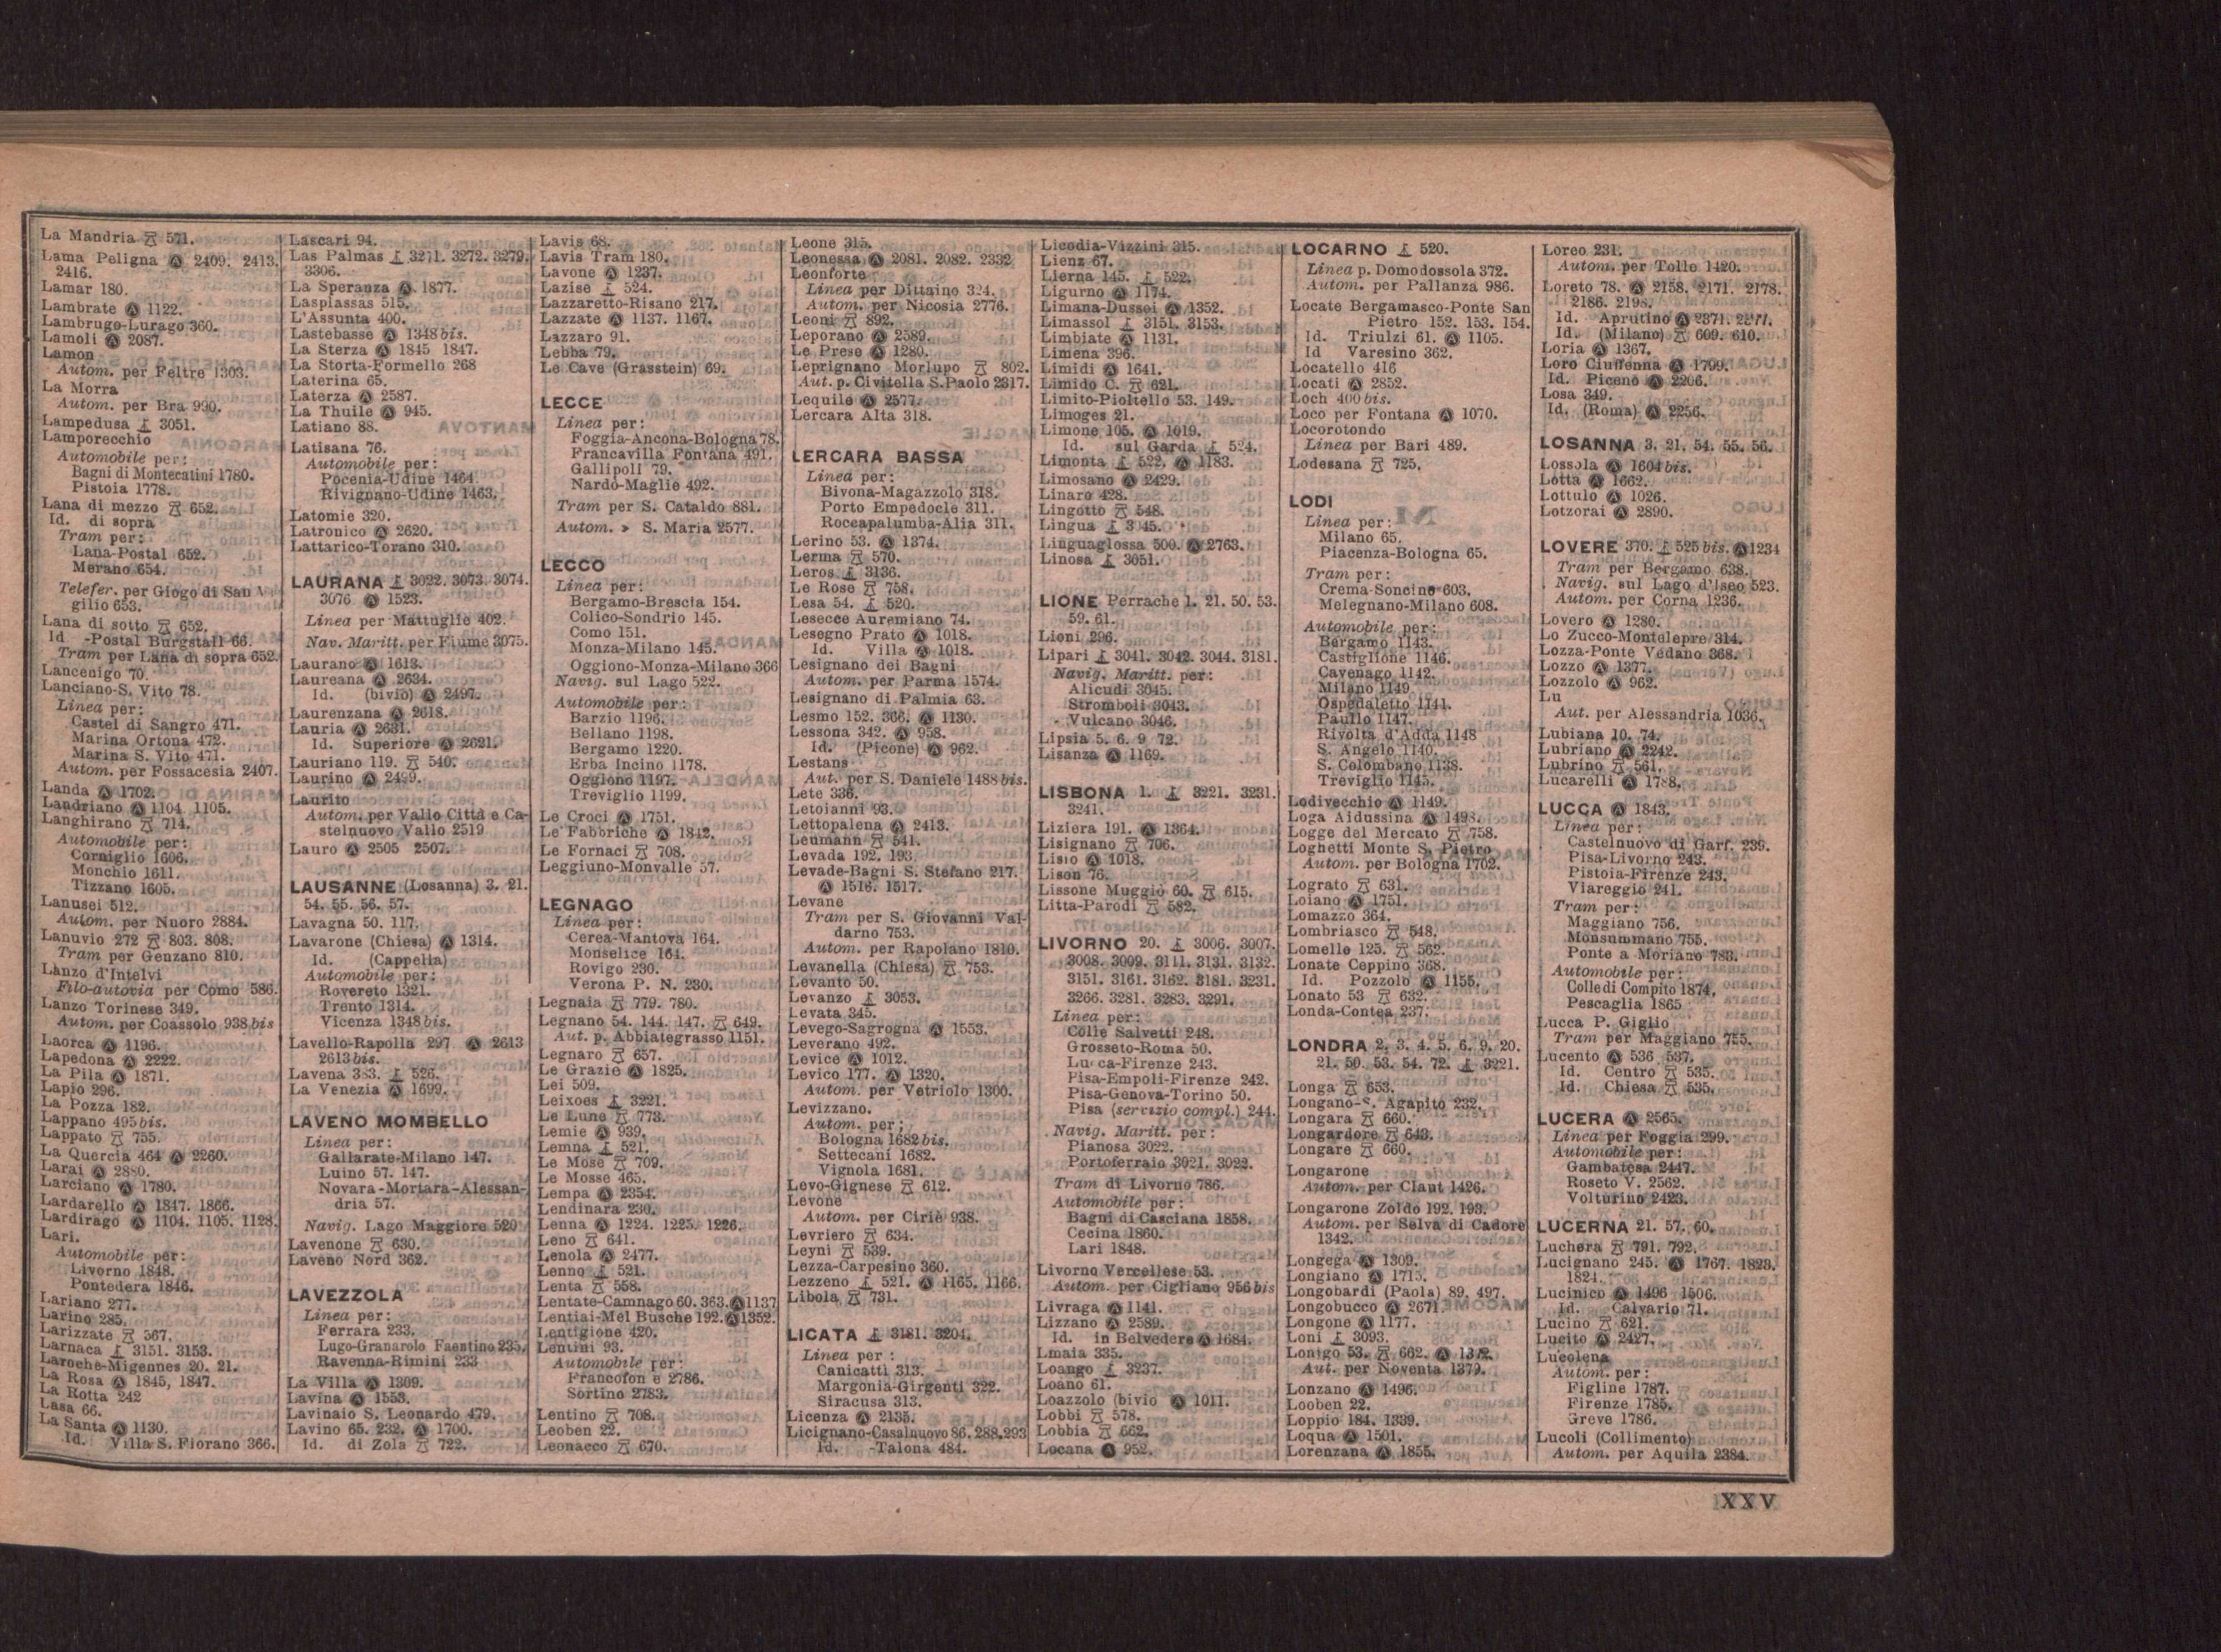 La Mandria 571.
Lama Peligna Ⓐ 2409. 2413.
2416.
Lamar 180.
Lambrate Ⓐ 1122.
Lambrugo-Lurago 360.
Lamoli Ⓐ 2087.
Lamon
Autom. per Feltre 1303.
La Morra
Autom. per Bra 990.
Lampedusa 3051.
Lamporecchio
Automobile per:
Bagni di Montecatini 1780.
Pistoia 1778.
Lana di mezzo 652.
Id. di sopra
Tram per:
Lana-Postal 652.
Merano 654.
Telefer. per Giogo di San
gilio 653.
Lana di sotto 652.
Id -Postal Burgstall 66.
Tram per Lana di sopra 652.
Lancenigo 70.
Lanciano-S. Vito 78.
Linea per:
Castel di Sangro 471.
Marina Ortona 472.
Marina S. Vito 471.
Autom. per Fossacesia 2407.
Landa Ⓐ 1702.
Landriano Ⓐ 1104. 1105.
Langhirano 714.
Automobile per:
Corniglio 1606.
Monchio 1611.
Tizzano 1605.
Lanusei 512.
Autom. per Nuoro 2884.
Lanuvio 272 803. 808.
Tram per Genzano 810.
Lanzo d'Intelvi
Filo-autovia per Como 586.
Lanzo Torinese 349.
Autom. per Coassolo 938 bis
Laorca Ⓐ 1196.
Lapedona Ⓐ 2222.
La Pila Ⓐ 1871.
Lapio 296.
La Pozza 182.
Lappano 495 bis.
Lappato 755.
La Quercia 464 Ⓐ 2260.
Larai Ⓐ 2880.
Larciano Ⓐ 1780.
Lardarello Ⓐ 1847. 1866.
Lardirago Ⓐ 1104. 1105. 1128.
Lari.
Automobile per:
Livorno 1848.
Pontedera 1846.
Lariano 277.
Larino 285.
Larizzate 567.
Larnaca 3151. 3153.
Laroche-Migennes 20. 21.
La Rosa Ⓐ 1845, 1847.
La Rotta 242
Lasa 66.
La Santa Ⓐ 1130.
Id. Villa S. Fiorano 366.
Lascari 94.
Las Palmas 3271. 3272. 3279.
3306.
La Speranza Ⓐ 1877.
Lasplassas 515.
L'Assunta 400.
Lastebasse Ⓐ 1348 bis.
La Sterza Ⓐ 1845 1847.
La Storta-Formello 268
Laterina 65.
Laterza Ⓐ 2587.
La Thuile Ⓐ 945.
Latiano 88.
Latisana 76.
Automobile per:
Pocenia-Udine 1464.
Rivignano-Udine 1463.
Latomie 320.
Latronico Ⓐ 2620.
Lattarico-Torano 310.
LAURANA 3022. 3073. 3074.
3076 Ⓐ 1523.
Linea per Mattuglie 402.
Nav. Maritt. per Fiume 3075.
Laurano Ⓐ 1613.
Laureana Ⓐ 2634.
Id. (bivio) Ⓐ 2497.
Laurenzana Ⓐ 2618.
Lauria Ⓐ 2631.
Id. Superiore Ⓐ 2621.
Lauriano 119. 540.
Laurino Ⓐ 2499.
Laurito
Autom. per Vallo Città e Ca-
stelnuovo Vallo 2519
Lauro Ⓐ 2505 2507.
LAUSANNE (Losanna) 3. 21.
54. 55. 56. 57.
Lavagna 50. 117.
Lavarone (Chiesa) Ⓐ 1314.
Id. (Cappella)
Automobile per:
Rovereto 1321.
Trento 1314.
Vicenza 1348 bis.
Lavello-Rapolla 297 Ⓐ 2613
2613 bis.
Lavena 383. 526.
La Venezia Ⓐ 1699.
LAVENO MOMBELLO
Linea per:
Gallarate-Milano 147.
Luino 57. 147.
Novara-Mortara-Alessan-
dria 57.
Navig. Lago Maggiore 520
Lavenone 630.
Laveno Nord 362.
LAVEZZOLA
Linea per:
Ferrara 233.
Lugo-Granarolo Faentino 235.
Ravenna-Rimini 233
La Villa Ⓐ 1309.
Lavina Ⓐ 1553.
Lavinaio S. Leonardo 479.
Lavino 65. 232. Ⓐ 1700.
Id. di Zola 722.
Lavis 68.
Lavis Tram 180.
Lavone Ⓐ 1237.
Lazise 524.
Lazzaretto-Risano 217.
Lazzate Ⓐ 1137. 1167.
Lazzaro 91.
Lebba 79.
Le Cave (Grasstein) 69.
LECCE
Linea per:
Foggia-Ancona-Bologna 78.
Francavilla Fontana 491.
Gallipoli 79.
Nardò-Maglie 492.
Tram per S. Cataldo 881.
Autom. » S. Maria 2577.
LECCO
Linea per:
Bergamo-Brescia 154.
Colico-Sondrio 145.
Como 151.
Monza-Milano 145.
Oggiono-Monza-Milano 366
Navig. sul Lago 522.
Automobile per:
Barzio 1196.
Bellano 1198.
Bergamo 1220.
Erba Incino 1178.
Oggiono 1197.
Treviglio 1199.
Le Croci Ⓐ 1751.
Le Fabbriche Ⓐ 1842.
Le Fornaci 708.
Leggiuno-Monvalle 57.
LEGNAGO
Linea per:
Cerea-Mantova 164.
Monselice 164.
Rovigo 230.
Verona P. N. 230.
Legnaia 779. 780.
Legnano 54. 144. 147. 649.
Aut. p. Abbiategrasso 1151.
Legnaro 657.
Le Grazie Ⓐ 1825.
Lei 509.
Leixoes 3221.
Le Lune 773.
Lemie Ⓐ 939.
Lemna 521.
Le Mose 709.
Le Mosse 465.
Lempa Ⓐ 2354.
Lendinara 230.
Lenna Ⓐ 1224. 1225. 1226.
Leno 641.
Lenola Ⓐ 2477.
Lenno 521.
Lenta 558.
Lentate-Camnago 60. 363. Ⓐ 1137
Lentiai-Mel Busche 192. Ⓐ 1352.
Lentigione 420.
Lentini 93.
Automobile per:
Francofon e 2786.
Sortino 2783.
Lentino 708.
Leoben 22.
Leonacco 670.
Leone 315.
Leonessa Ⓐ 2081. 2082. 2332
Leonforte
Linea per Dittaino 324.
Autom. per Nicosia 2776.
Leoni 892.
Leporano Ⓐ 2589.
Le Prese Ⓐ 1280.
Leprignano Morlupo 802.
Aut. p. Civitella S. Paolo 2317.
Lequile Ⓐ 2577.
Lercara Alta 318.
LERCARA BASSA
Linea per:
Bivona-Magazzolo 318.
Porto Empedocle 311.
Roccapalumba-Alia 311.
Lerino 53. Ⓐ 1374.
Lerma 570.
Leros 3136.
Le Rose 758.
Lesa 54. 520.
Lesecce Auremiano 74.
Lesegno Prato Ⓐ 1018.
Id. Villa Ⓐ 1018.
Lesignano dei Bagni
Autom. per Parma 1574.
Lesignano di Palmia 63.
Lesmo 152. 366. Ⓐ 1130.
Lessona 342. Ⓐ 958.
Id. (Picone) Ⓐ 962.
Lestans
Aut. per S. Daniele 1488 bis.
Lete 336.
Letoianni 93.
Lettopalena Ⓐ 2413.
Leumann 541.
Levada 192. 193.
Levade-Bagni S. Stefano 217.
Ⓐ 1516. 1517.
Levane
Tram per S. Giovanni Val-
darno 753.
Autom. per Rapolano 1810.
Levanella (Chiesa) 753.
Levanto 50.
Levanzo 3053.
Levata 345.
Levego-Sagrogna Ⓐ 1553.
Leverano 492.
Levice Ⓐ 1012.
Levico 177. Ⓐ 1320.
Autom. per Vetriolo 1300.
Levizzano.
Autom. per:
Bologna 1682 bis.
Settecani 1682.
Vignola 1681.
Levo-Gignese 612.
Levone
Autom. per Ciriè 938.
Levriero 634.
Leyni 539.
Lezza-Carpesino 360.
Lezzeno 521. Ⓐ 1165. 1166.
Libola 731.
LICATA 3181. 3204.
Linea per:
Canicattì 313.
Margonia-Girgenti 322.
Siracusa 313.
Licenza Ⓐ 2135.
Licignano-Casalnuovo 86. 288. 293
Id. -Talona 484.
Licodia-Vizzini 315.
Lienz 67.
Lierna 145. 522.
Ligurno Ⓐ 1174.
Limana-Dussoi Ⓐ 1352.
Limassol 3151. 3153.
Limbiate Ⓐ 1131.
Limena 396.
Limidi Ⓐ 1641.
Limido C. 621.
Limito-Pioltello 53. 149.
Limoges 21.
Limone 105. Ⓐ 1019.
Id. sul Garda 524.
Limonta 522. Ⓐ 1183.
Limosano Ⓐ 2429.
Linaro 428.
Lingotto 548.
Lingua 3 45.
Linguaglossa 500. Ⓐ 2763.
Linosa 3051.
LIONE Perrache 1. 21. 50. 53.
59. 61.
Lioni 296.
Lipari 3041. 3042. 3044. 3181.
Navig. Maritt. per:
Alicudi 3045.
Stromboli 3043.
Vulcano 3046.
Lipsia 5. 6. 9 72.
Lisanza Ⓐ 1169.
LISBONA 1. 3221. 3231.
3241.
Liziera 191. Ⓐ 1364.
Lisignano 706.
Lisio Ⓐ 1018.
Lison 76.
Lissone Muggiò 60. 615.
Litta-Parodi 582.
LIVORNO 20. 3006. 3007.
3008. 3009. 3111. 3131. 3132.
3151. 3161. 3162. 3181. 3231.
3266. 3281. 3283. 3291.
Linea per:
Colle Salvetti 248.
Grosseto-Roma 50.
Lucca-Firenze 243.
Pisa-Empoli-Firenze 242.
Pisa-Genova-Torino 50.
Pisa (servizio compl.) 244.
Navig. Maritt. per:
Pianosa 3022.
Portoferraio 3021. 3022.
Tram di Livorno 786.
Automobile per:
Bagni di Casciana 1858.
Cecina 1860.
Lari 1848.
Livorno Vercellese 53.
Autom. per Cigliano 956 bis
Livraga Ⓐ 1141.
Lizzano Ⓐ 2589.
Id. in Belvedere Ⓐ 1684.
Lmaia 335.
Loango 3237.
Loano 61.
Loazzolo (bivio Ⓐ 1011.
Lobbi 578.
Lobbia 662.
Locana Ⓐ 952.
LOCARNO 520.
Linea p. Domodossola 372.
Autom. per Pallanza 986.
Locate Bergamasco-Ponte San
Pietro 152. 153. 154.
Id. Triulzi 61. Ⓐ 1105.
Id Varesino 362.
Locatello 416
Locati Ⓐ 2852.
Loch 400 bis.
Loco per Fontana Ⓐ 1070.
Locorotondo
Linea per Bari 489.
Lodesana 725.
LODI
Linea per:
Milano 65.
Piacenza-Bologna 65.
Tram per:
Crema-Soncino 603.
Melegnano-Milano 608.
Automobile per:
Bergamo 1143.
Castiglione 1146.
Cavenago 1142.
Milano 1149.
Ospedaletto 1141.
Paullo 1147.
Rivolta d'Adda 1148
S. Angelo 1140.
S. Colombano 1138.
Treviglio 1145.
Lodivecchio Ⓐ 1149.
Loga Aidussina Ⓐ 1498.
Logge del Mercato 758.
Loghetti Monte S. Pietro
Autom. per Bologna 1702.
Lograto 631.
Loiano Ⓐ 1751.
Lomazzo 364.
Lombriasco 548.
Lomello 125. 562.
Lonate Ceppino 368.
Id. Pozzolo Ⓐ 1155.
Lonato 53 632.
Londa-Contea 237.
LONDRA 2. 3. 4. 5. 6. 9. 20.
21. 50. 53. 54. 72. 3221.
Longa 653.
Longano-S. Agapito 232.
Longara 660.
Longardore 643.
Longare 660.
Longarone
Autom. per Claut 1426.
Longarone Zoldo 192. 193.
Autom. per Selva di Cadore
1342.
Longega Ⓐ 1309.
Longiano Ⓐ 1715.
Longobardi (Paola) 89. 497.
Longobucco Ⓐ 2671.
Longone Ⓐ 1177.
Loni 3093.
Lonigo 53. 662. Ⓐ
Aut. per Noventa 1379.
Lonzano Ⓐ 1496.
Looben 22.
Loppio 184. 1339.
Loqua Ⓐ 1501.
Lorenzana Ⓐ 1855.
Loreo 231.
Autom. per Tolle 1420.
Loreto 78. Ⓐ 2158. 2171. 2178.
2186. 2198.
Id. Aprutino Ⓐ 2371.
Id. (Milano) 609. 610.
Loria Ⓐ 1367.
Loro Ciuffenna Ⓐ 1799.
Id. Piceno Ⓐ 2206.
Losa 349.
Id. (Roma) Ⓐ 2256.
LOSANNA 3. 21. 54. 55. 56.
Lossola Ⓐ 1604 bis.
Lotta Ⓐ 1662.
Lottulo Ⓐ 1026.
Lotzorai Ⓐ 2890.
LOVERE 370. 525 bis. Ⓐ 1234
Tram per Bergamo 638.
Navig. sul Lago d'Iseo 523.
Autom. per Corna 1236.
Lovero Ⓐ 1280.
Lo Zucco-Montelepre 314.
Lozza-Ponte Vedano 368.
Lozzo Ⓐ 1377.
Lozzolo Ⓐ 962.
Lu
Aut. per Alessandria 1036.
Lubiana 10. 74.
Lubriano Ⓐ 2242.
Lubrino 561.
Lucarelli Ⓐ 1788.
LUCCA Ⓐ 1843.
Linea per:
Castelnuovo di Garf. 239.
Pisa-Livorno 243.
Pistoia-Firenze 243.
Viareggio 241.
Tram per:
Maggiano 756.
Monsummano 755.
Ponte a Moriano 783.
Automobile per:
Colle di Compito 1874.
Pescaglia 1865
Lucca P. Giglio
Tram per Maggiano 755.
Lucento Ⓐ 536 537.
Id. Centro 535.
Id. Chiesa 535.
LUCERA Ⓐ 2565.
Linea per Foggia 299.
Automobile per:
Gambatesa 2447.
Roseto V. 2562.
Volturino 2423.
LUCERNA 21. 57. 60.
Luchera 791. 792.
Lucignano 245. Ⓐ 1767. 1823.
1824.
Lucinico Ⓐ 1496 1506.
Id. Calvario 71.
Lucino 621.
Lucito Ⓐ 2427.
Lucolena
Autom. per:
Figline 1787.
Firenze 1785.
Greve 1786.
Lucoli (Collimento)
Autom. per Aquila 2384.
XXV